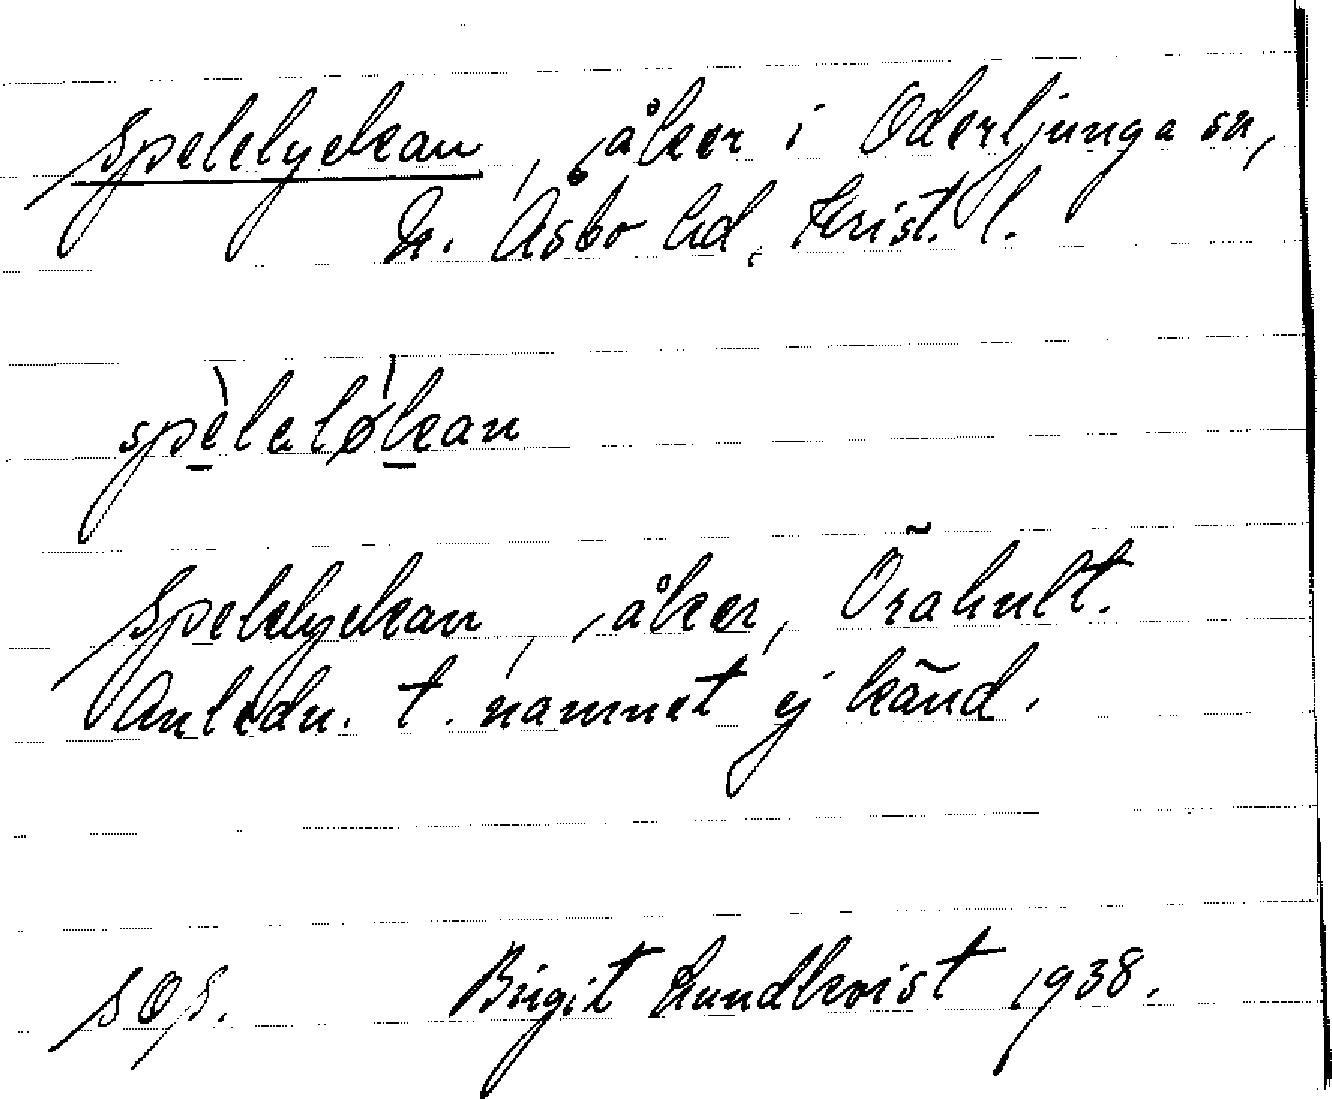 Spelelyckan, åker i Oderljunga sn,
N. Åsbo hd, Krist. l.
spèlelø̀kan
Spelelyckan, åker, Örahult.
Anledn. t. namnet ej känd.
Birgit Lundkvist 1938.